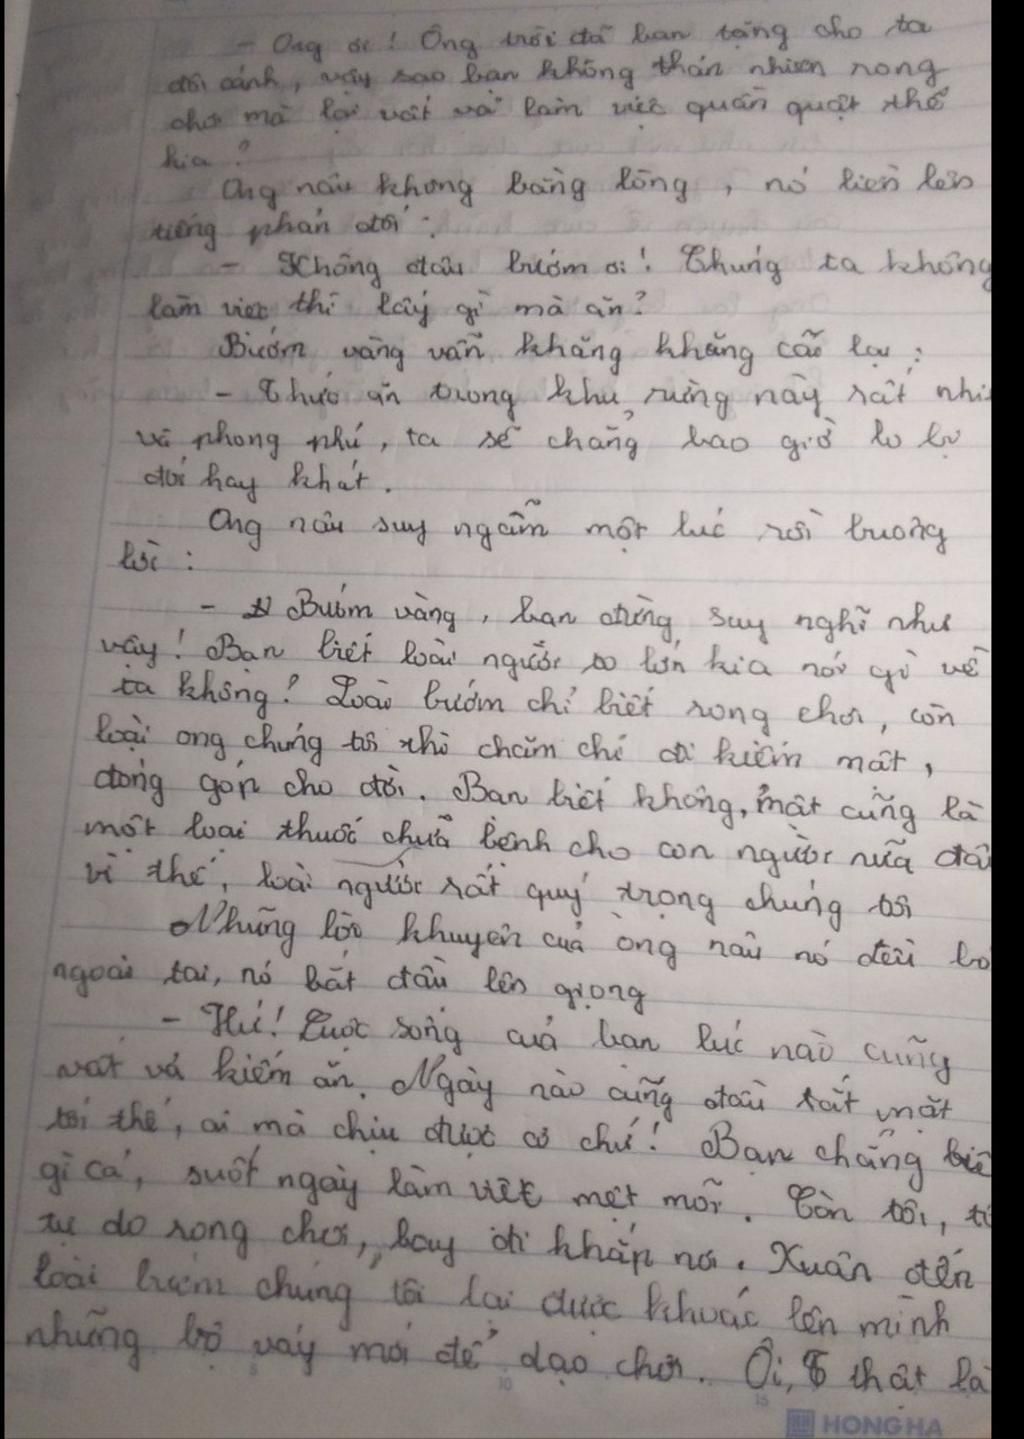 - Ong ơi! Ông trời đã ban tặng cho ta
đôi cánh, vậy sao bạn không thản nhiên rong
chơi mà lại vất vả làm việc quần quật thế
kia?
Ong nâu không bằng lòng, nó liền lên
tiếng phản đối:
- Không đâu bướm ơi! Chúng ta không
làm việc thì lấy gì mà ăn?
Bướm vàng vẫn khăng khăng cãi lại:
- Thức ăn trong khu rừng này rất nhi
và phong phú, ta sẽ chẳng bao giờ lo bị
đói hay khát.
Ong nâu suy ngẫm một lúc rồi buông
lời:
- Bướm vàng, bạn đừng suy nghĩ như
vậy! Bạn biết loài người to lớn kia nói gì về
ta không? Loài bướm chỉ biết rong chơi, còn
loài ong chúng tôi thì chăm chỉ đi kiếm mật,
đóng góp cho đời. Bạn biết không, mật cũng là
một loại thuốc chữa bệnh cho con người nữa đấ
vì thế, loài người rất quý trọng chúng tôi
Những lời khuyên của ong nâu nó đều bỏ
ngoài tai, nó bắt đầu lên giọng
- Hứ! Cuộc sống của bạn lúc nào cũng
vất vả kiếm ăn. Ngày nào cũng đầu tắt mặt
tối thế, ai mà chịu được cơ chứ! Bạn chẳng biế
gì cả, suốt ngày làm việc mệt mỏi. Còn tôi, tô
tự do rong chơi, bay đi khắp nơi. Xuân đến
loài bướm chúng tôi lại được khoác lên mình
những bộ váy mới để dạo chơi. Ôi, thật là
5 10 15
HONG HA